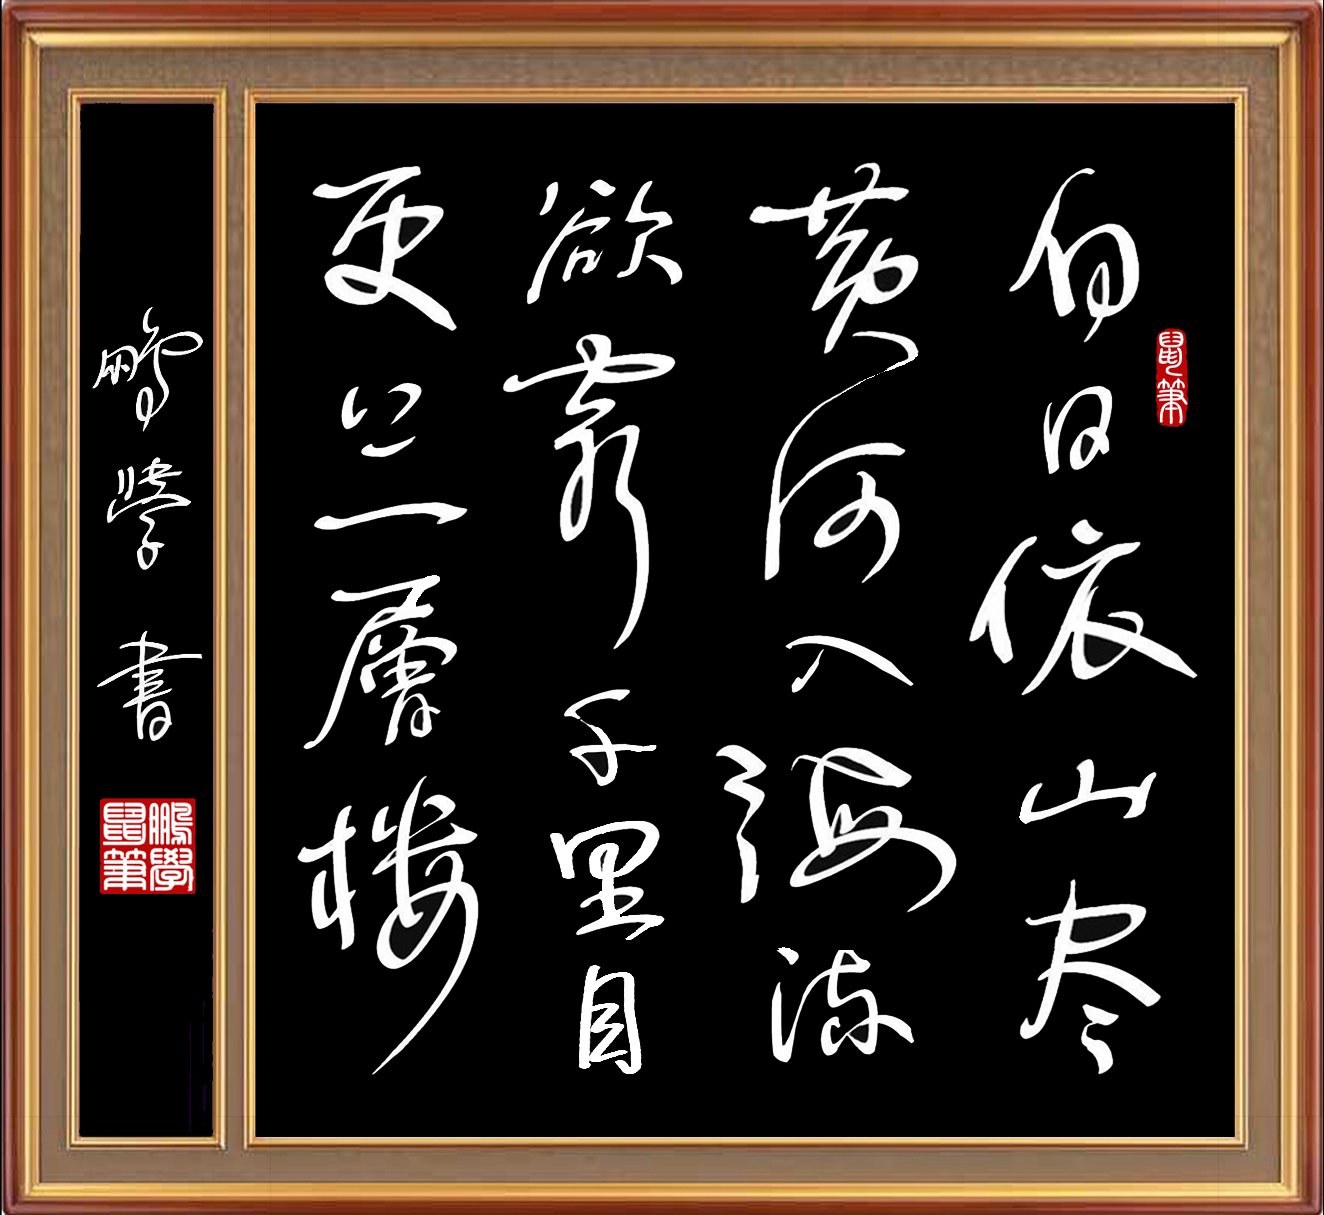 白日依山尽
黄河入海流
欲穷千里目
更上一層楼
鹏学書
鼠筆
鵬學鼠筆